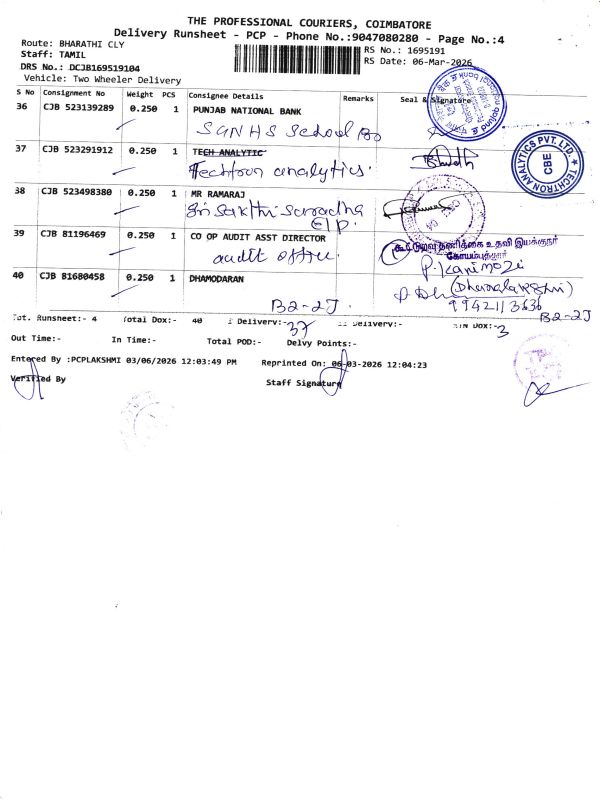 THE PROFESSIONAL COURIERS, COIMBATORE
Delivery Runsheet - PCP - Phone No.:9047080280 - Page No.:4
Route: BHARATHI CLY
RS No.: 1695191
Staff: TAMIL
RS Date: 06-Mar-2026
DRS No.: DCJB169519104
Vehicle: Two Wheeler Delivery
S No Consignment No Weight PCS Consignee Details Remarks Seal & Signature
36 CJB 523139289 0.250 1 PUNJAB NATIONAL BANK
SGNHS School Bo
37 CJB 523291912 0.250 1 TECH ANALYTIC
Techtron analytics.
TECHTRON ANALYTICS PVT. LTD.
CBE
38 CJB 523498380 0.250 1 MR RAMARAJ
Sri Sakthi Saradha
39 CJB 81196469 0.250 1 CO OP AUDIT ASST DIRECTOR
audit office.
கூட்டுறவு தணிக்கை உதவி இயக்குநர்
கோயம்புத்தூர்
P. Kanimozi
40 CJB 81680458 0.250 1 DHAMODARAN
(Dhanalakshmi)
B2-2J.
B2-2J
Tot. Runsheet:- 4 Total Dox:- 40 Delivery:- 37 Delivery:- RTN Dox:- 3
Out Time:- In Time:- Total POD:- Delvy Points:-
Entered By :PCPLAKSHMI 03/06/2026 12:03:49 PM Reprinted On: 06-03-2026 12:04:23
Verified By Staff Signature